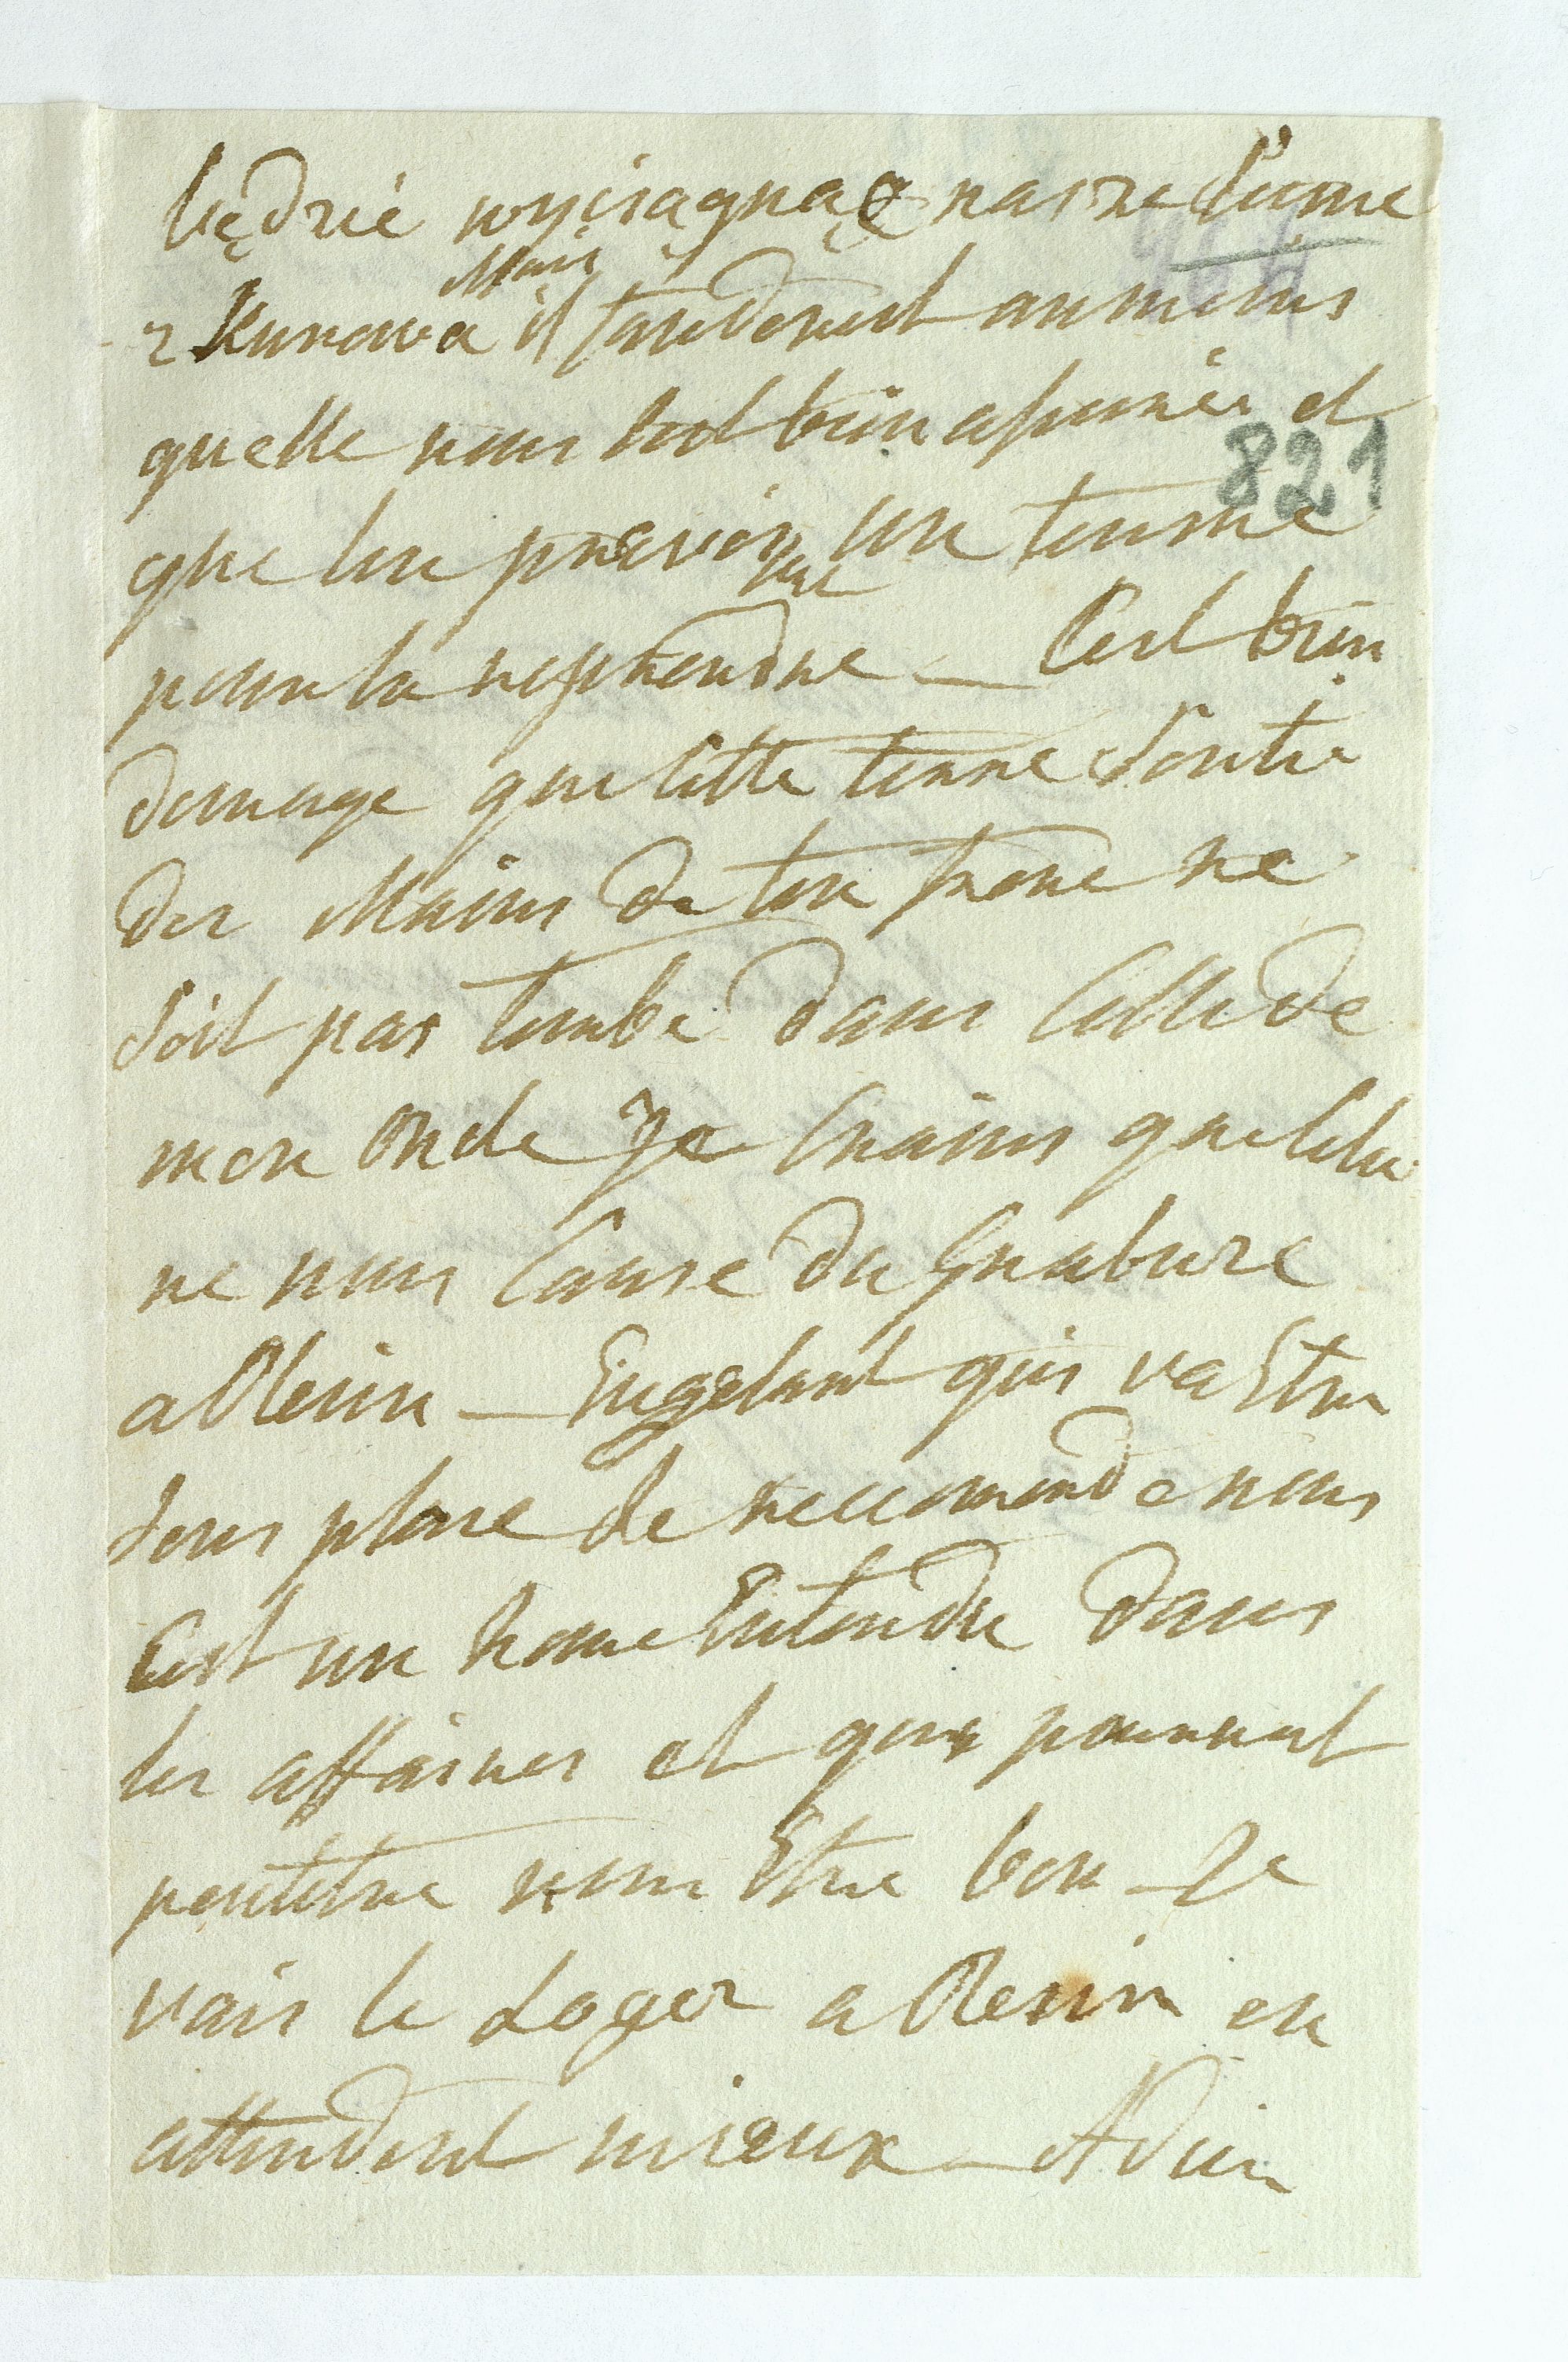 będzie wyciągnąć nasze Sume
z Kurowa Mais il faudroit aumoins
quelle nous soit bien assurée et
821
que lon prevoie un terme
pour la reprendre — Cest bien
domage que cette terre sortie
des Mains de ton frere ne
soit pas tombé dans Celle de
mon Oncle Je Crains que Cela
ne nous Cause du Grabuze
a Olesin — Engelant qui va Etre
sens place se recomende nous
Cest un home Entendu dans
les affaires et qui pouroit
peutetre nous Etre bon — Je
vais le Loger a Olesin en
attendent mieux — Adieu